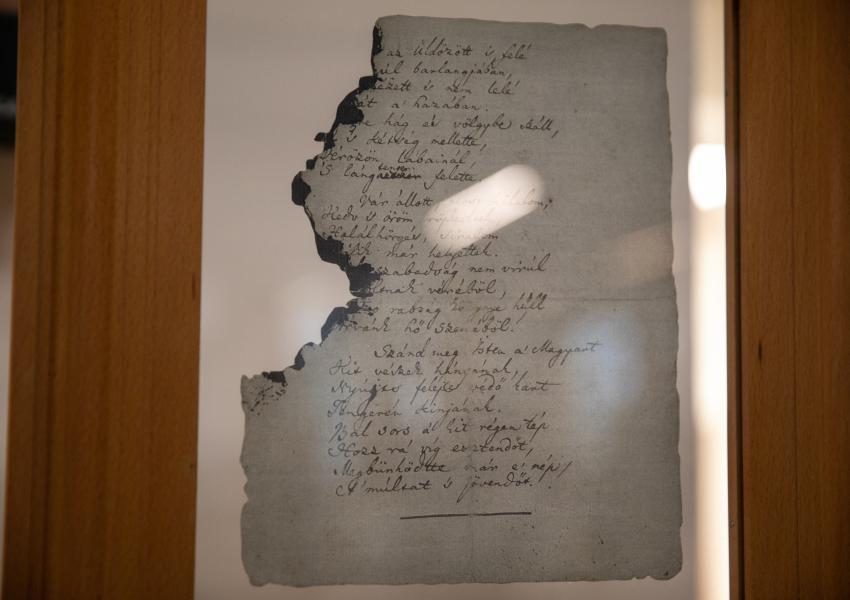 az üldözött 's felé
ül barlangjában,
ézett 's nem lelé
át a' hazában.
hág és völgybe száll,
's kétség mellette,
Vérözön lábainál,
'S lángtenger felette.
Vár állott, most kőhalom,
Kedv 's öröm röpkedtek
Halálhörgés, siralom
lik már helyettek.
szabadság nem virúl
ltnak véréből,
rabság könnye hull
rvánk hő szeméből.
Szánd meg Isten a' Magyart
Kit vészek hányának,
Nyújts feléje védő kart
Tengerén kínjának.
Bal sors a' kit régen tép
Hozz rá víg esztendőt,
Megbünhödte már e' nép
A' múltat 's jövendőt.